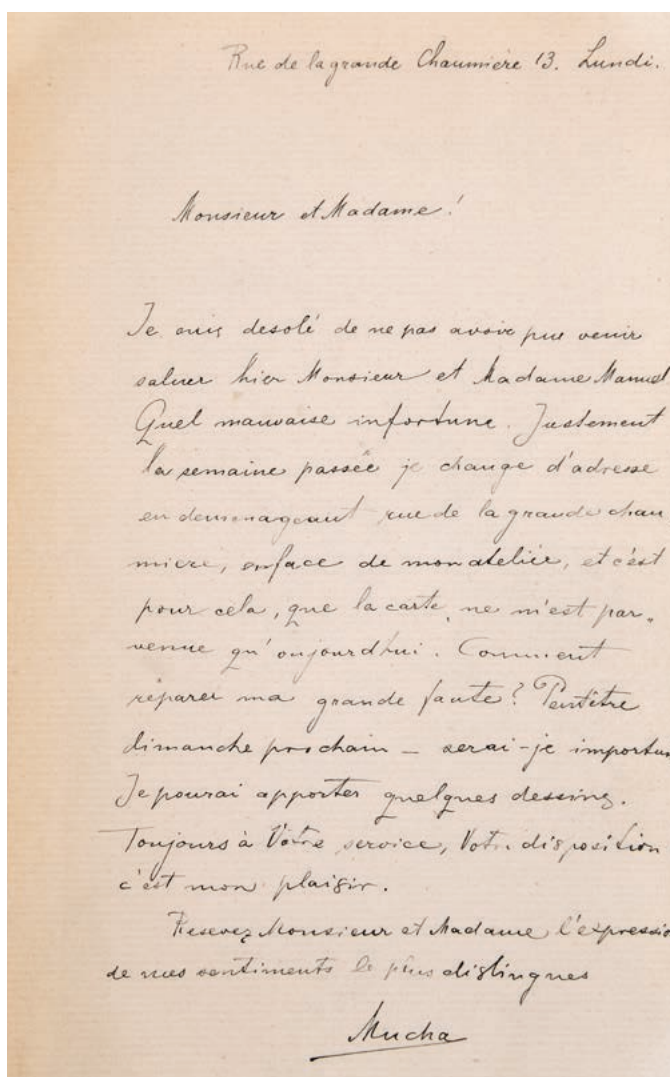 Rue de la grande Chaumière 13. Lundi.
Monsieur et Madame!
Je suis desolé de ne pas avoir pue venir
saluer hier Monsieur et Madame Manuel
Quel mauvaise infortune. Justement
la semaine passée je change d'adresse
en demenageant rue de la grande chau
miere, enface de mon atelièr, et c'est
pour cela, que la carte ne m'est par„
venue qu'oujourdhui. Comment
réparer ma grande faute? Peutêtre
dimanche prochain – serai-je importun
Je pourai apporter quelques dessins.
Toujours à Votre service, Votre disposition
c'est mon plaisir.
Resevez Monsieur et Madame l'expressio
de mes sentiments le plus distingues
Mucha